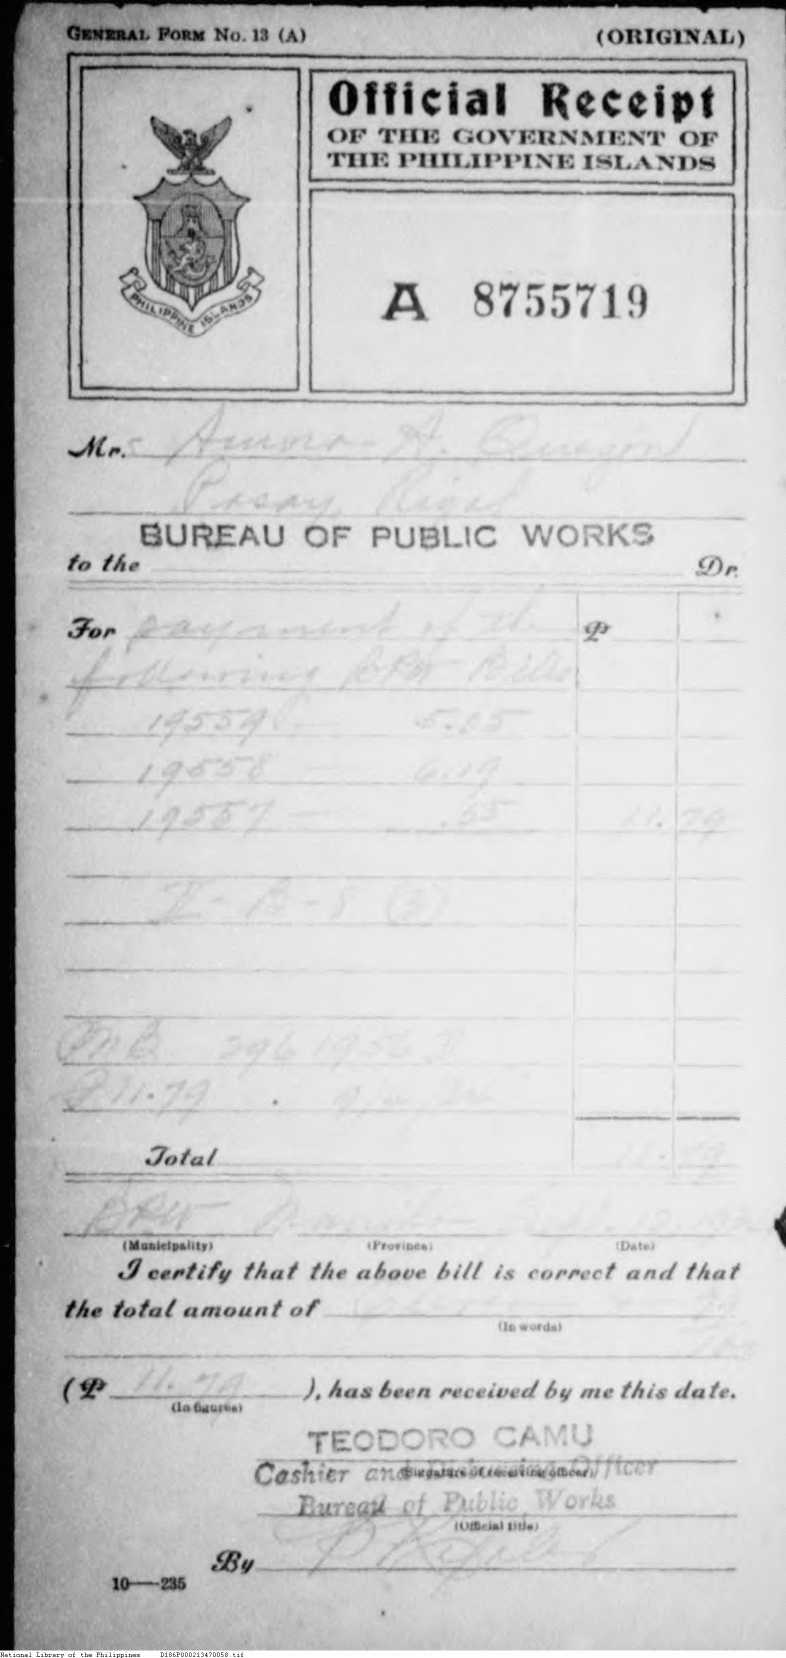 GENERAL FORM No. 13 (A) (ORIGINAL)
Official Receipt
OF THE GOVERNMENT OF
THE PHILIPPINE ISLANDS
PHILIPPINE ISLANDS
A 8755719
Mr.s A.
Pasay, Rizal
BUREAU OF PUBLIC WORKS
to the Dr.
For payment of the ₱
following BPW Bills
19559 — 5.05
19558 — 6.19
19557 — .55 11.79
I-B-8 (3)
PNB
₱11.79
Total 11.79
BPW Manila Sept.
(Municipality) (Province) (Date)
I certify that the above bill is correct and that
the total amount of
(In words)
(₱ 11.79 ), has been received by me this date.
(In figures)
TEODORO CAMU
Cashier and Disbursing Officer
(Signature of receiving officer)
Bureau of Public Works
(Official title)
By
10—235
National Library of the Philippines D186P000213470058.tif